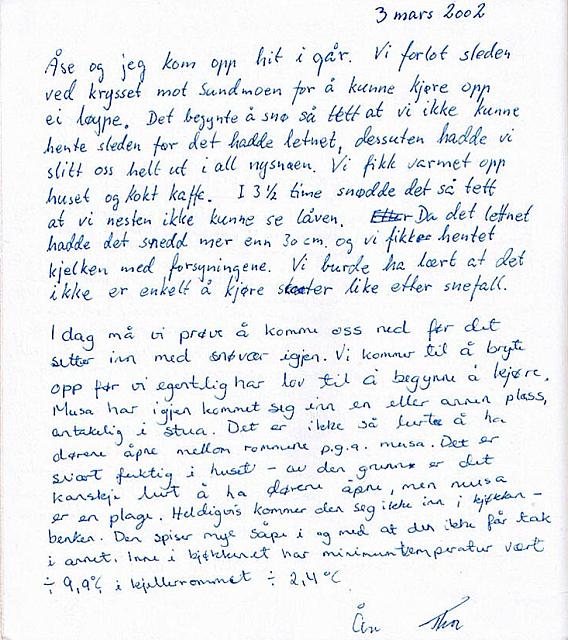 3 mars 2002
Åse og jeg kom opp hit i går. Vi forlot sleden
ved krysset mot Sundmoen for å kunne kjøre opp
ei løype. Det begynte å snø så tett at vi ikke kunne
hente sleden før det hadde letnet, dessuten hadde vi
slitt oss helt ut i all nysnøen. Vi fikk varmet opp
huset og kokt kaffe. I 3½ time snødde det så tett
at vi nesten ikke kunne se låven. Etter Da det lettnet
hadde det snedd mer enn 30 cm. og vi fikk hentet
kjelken med forsyningene. Vi burde ha lært at det
ikke er enkelt å kjøre scooter like etter snefall.
I dag må vi prøve å komme oss ned før det
setter inn med snøvær igjen. Vi kommer til å bryte
opp før vi egentlig har lov til å begynne å kjøre.
Musa har igjen kommet seg inn en eller annen plass,
antakelig i stua. Det er ikke så lurt å ha
dørene åpne mellom rommene p.g.a. musa. Det er
svært fuktig i huset - av den grunn er det
kanskje lurt å ha dørene åpne, men musa
er en plage. Heldigvis kommer den seg ikke inn i kjøkken-
benken. Den spiser mye såpe i og med at den ikke får tak
i annet. Inne i kjøkkenet har minimumtemperatur vært
÷ 9,9°C i kjellerrommet ÷ 2,4°C